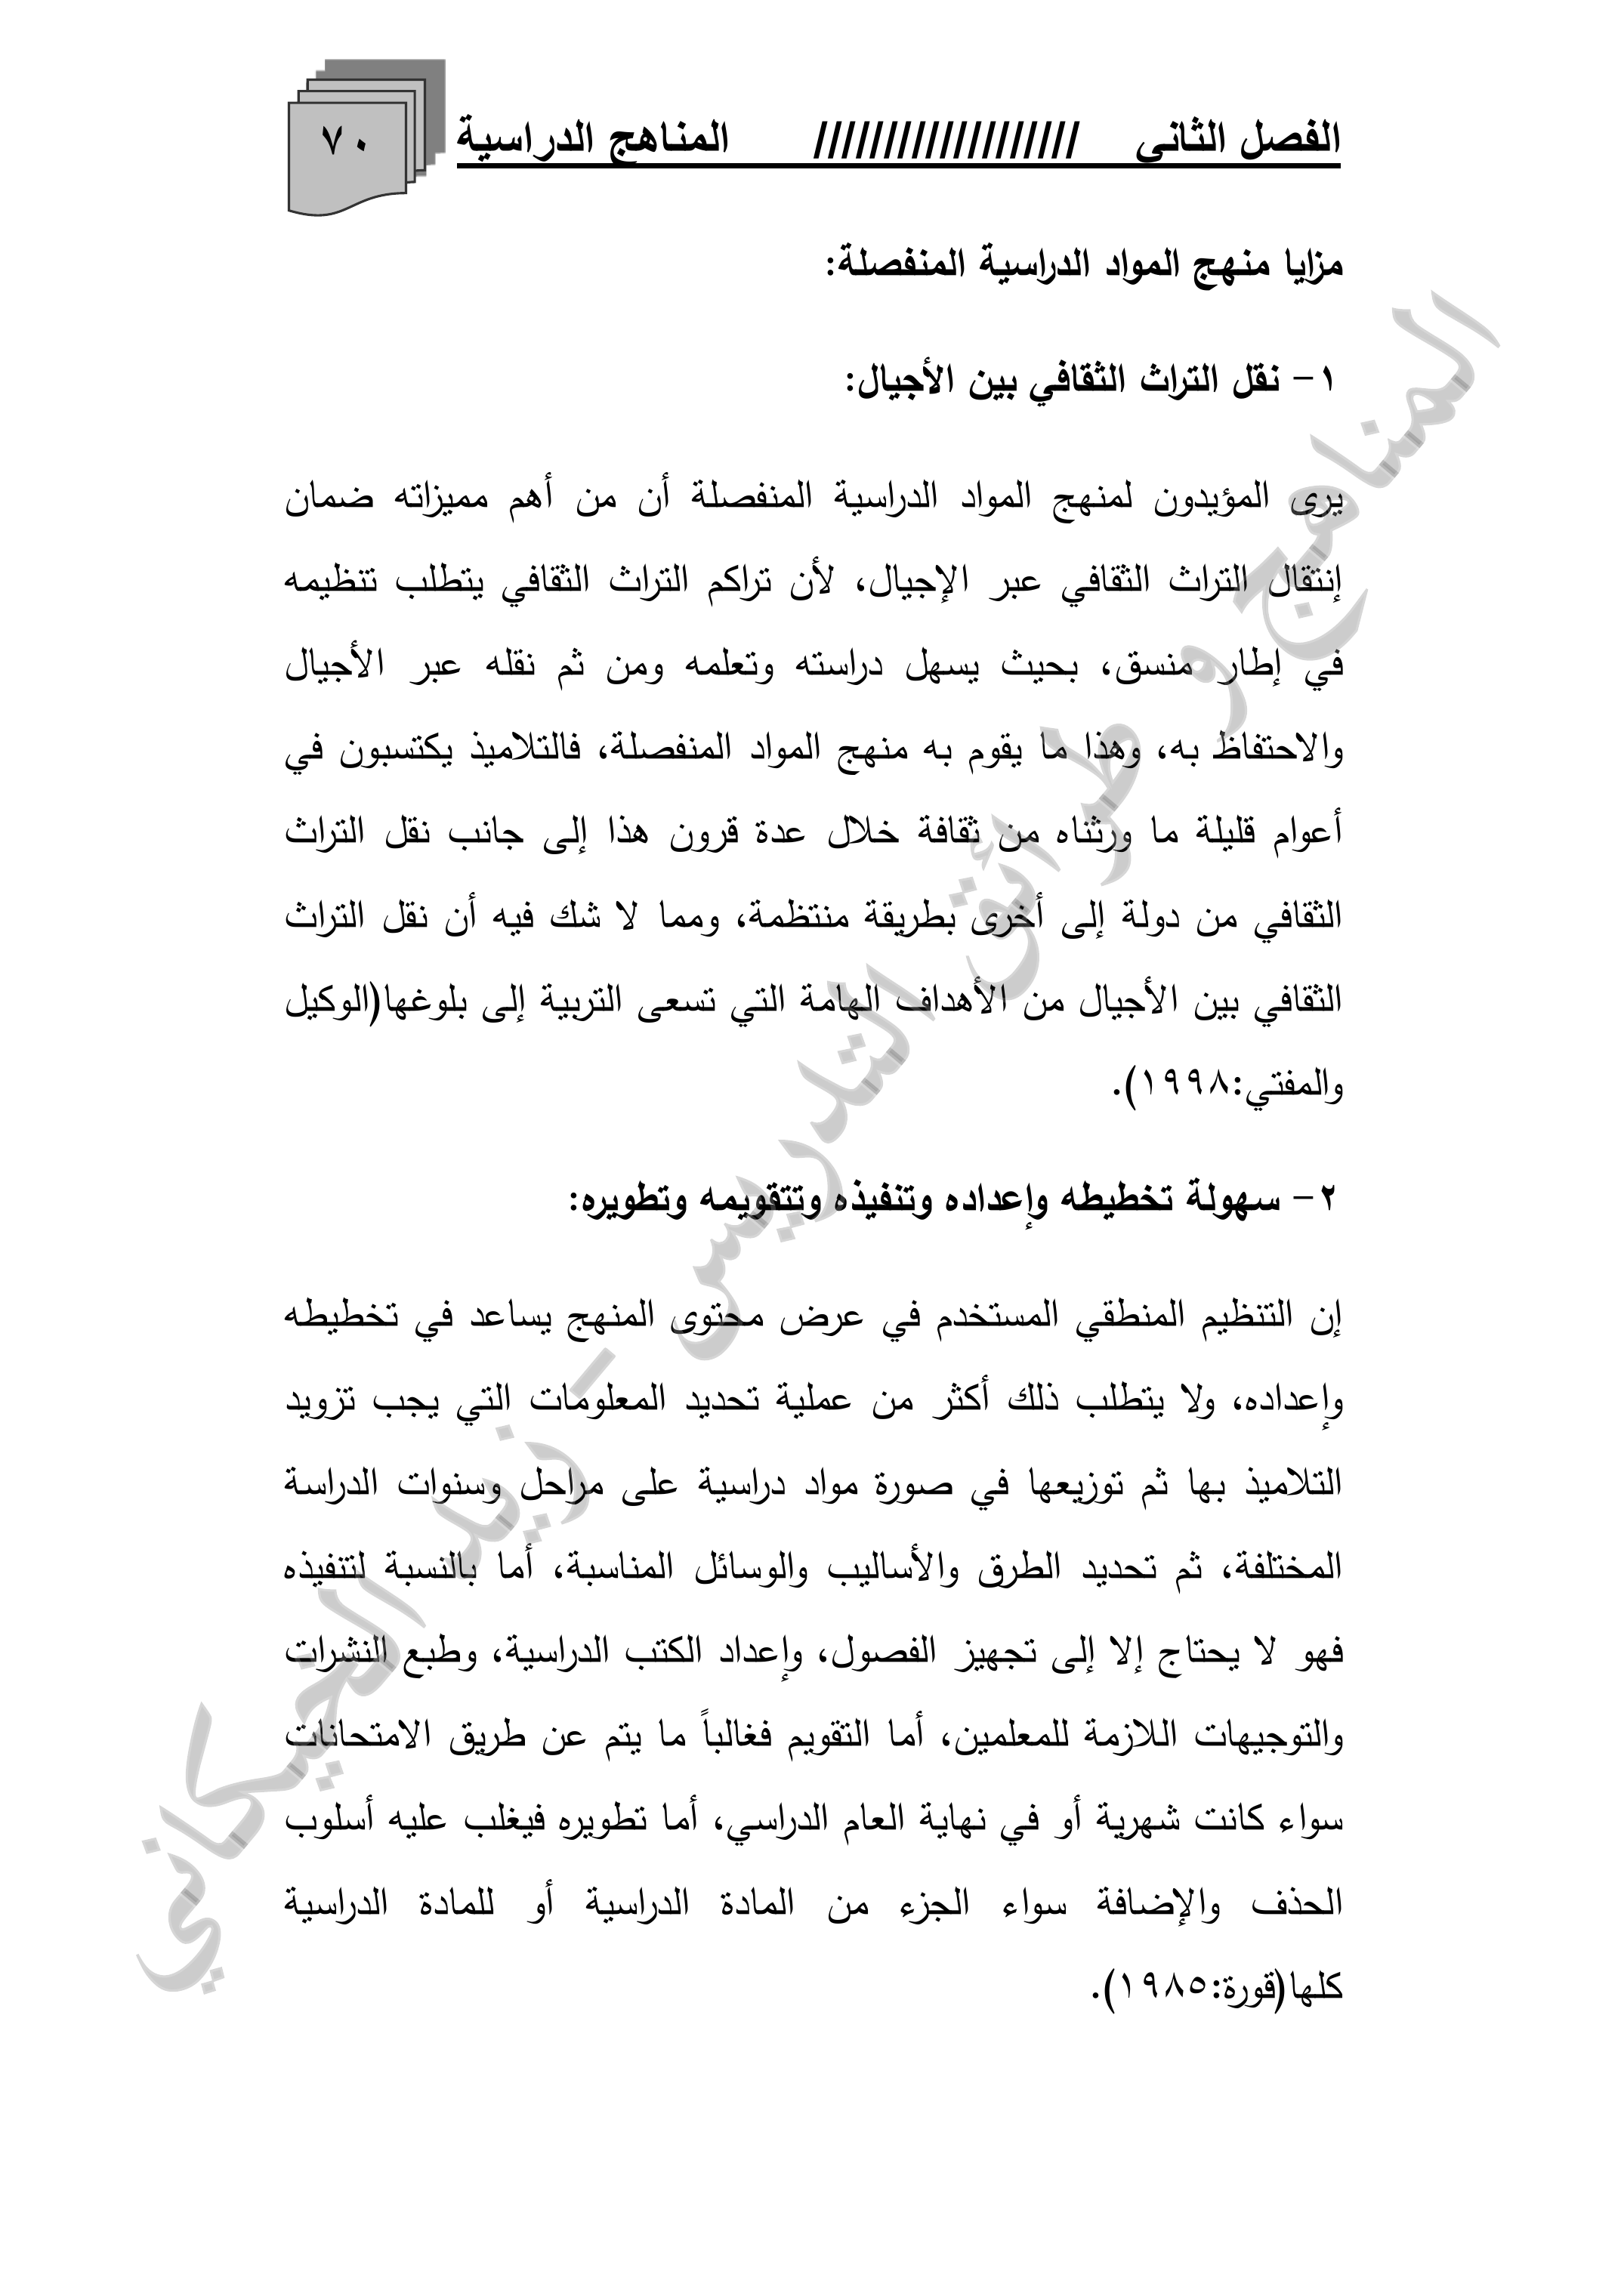 الفصل الثاني /////////////////// المناهج الدراسية ٧٠
مزايا منهج المواد الدراسية المنفصلة:
١- نقل التراث الثقافي بين الأجيال:
يرى المؤيدون لمنهج المواد الدراسية المنفصلة أن من أهم مميزاته ضمان
إنتقال التراث الثقافي عبر الإجيال، لأن تراكم التراث الثقافي يتطلب تنظيمه
في إطار منسق، بحيث يسهل دراسته وتعلمه ومن ثم نقله عبر الأجيال
والاحتفاظ به، وهذا ما يقوم به منهج المواد المنفصلة، فالتلاميذ يكتسبون في
أعوام قليلة ما ورثناه من ثقافة خلال عدة قرون هذا إلى جانب نقل التراث
الثقافي من دولة إلى أخرى بطريقة منتظمة، ومما لا شك فيه أن نقل التراث
الثقافي بين الأجيال من الأهداف الهامة التي تسعى التربية إلى بلوغها(الوكيل
والمفتي:١٩٩٨).
٢- سهولة تخطيطه وإعداده وتنفيذه وتتقويمه وتطويره:
إن التنظيم المنطقي المستخدم في عرض محتوى المنهج يساعد في تخطيطه
وإعداده، ولا يتطلب ذلك أكثر من عملية تحديد المعلومات التي يجب تزويد
التلاميذ بها ثم توزيعها في صورة مواد دراسية على مراحل وسنوات الدراسة
المختلفة، ثم تحديد الطرق والأساليب والوسائل المناسبة، أما بالنسبة لتنفيذه
فهو لا يحتاج إلا إلى تجهيز الفصول، وإعداد الكتب الدراسية، وطبع النشرات
والتوجيهات اللازمة للمعلمين، أما التقويم فغالباً ما يتم عن طريق الامتحانات
سواء كانت شهرية أو في نهاية العام الدراسي، أما تطويره فيغلب عليه أسلوب
الحذف والإضافة سواء الجزء من المادة الدراسية أو للمادة الدراسية
كلها(قورة:١٩٨٥).
المناهج و طرائق التدريس - زيد الخيكاني